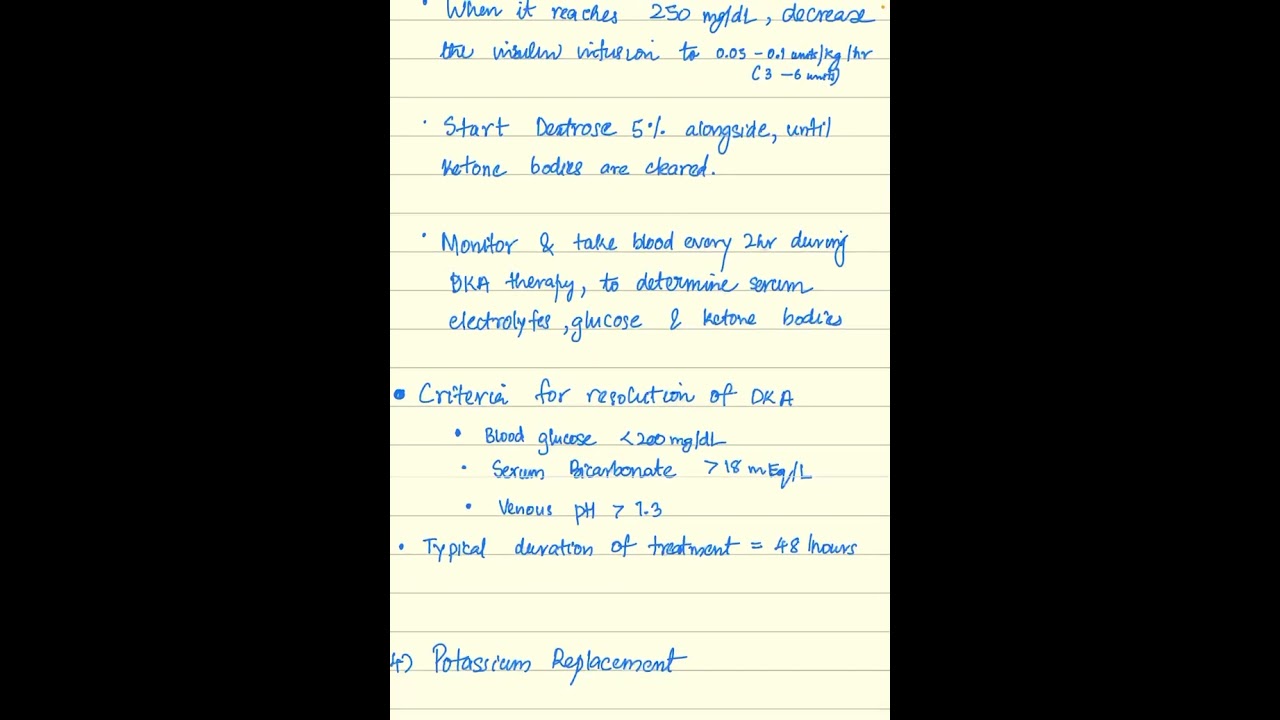 • When it reaches 250 mg/dL, decrease
the insulin infusion to 0.05 - 0.1 units/kg/hr
(3 - 6 units)
• Start Dextrose 5% alongside, until
ketone bodies are cleared.
• Monitor & take blood every 2hr during
DKA therapy, to determine serum
electrolytes, glucose & ketone bodies
• Criteria for resolution of DKA
• Blood glucose <200 mg/dL
• Serum Bicarbonate >18 mEq/L
• Venous pH > 7.3
• Typical duration of treatment = 48 hours
4) Potassium Replacement